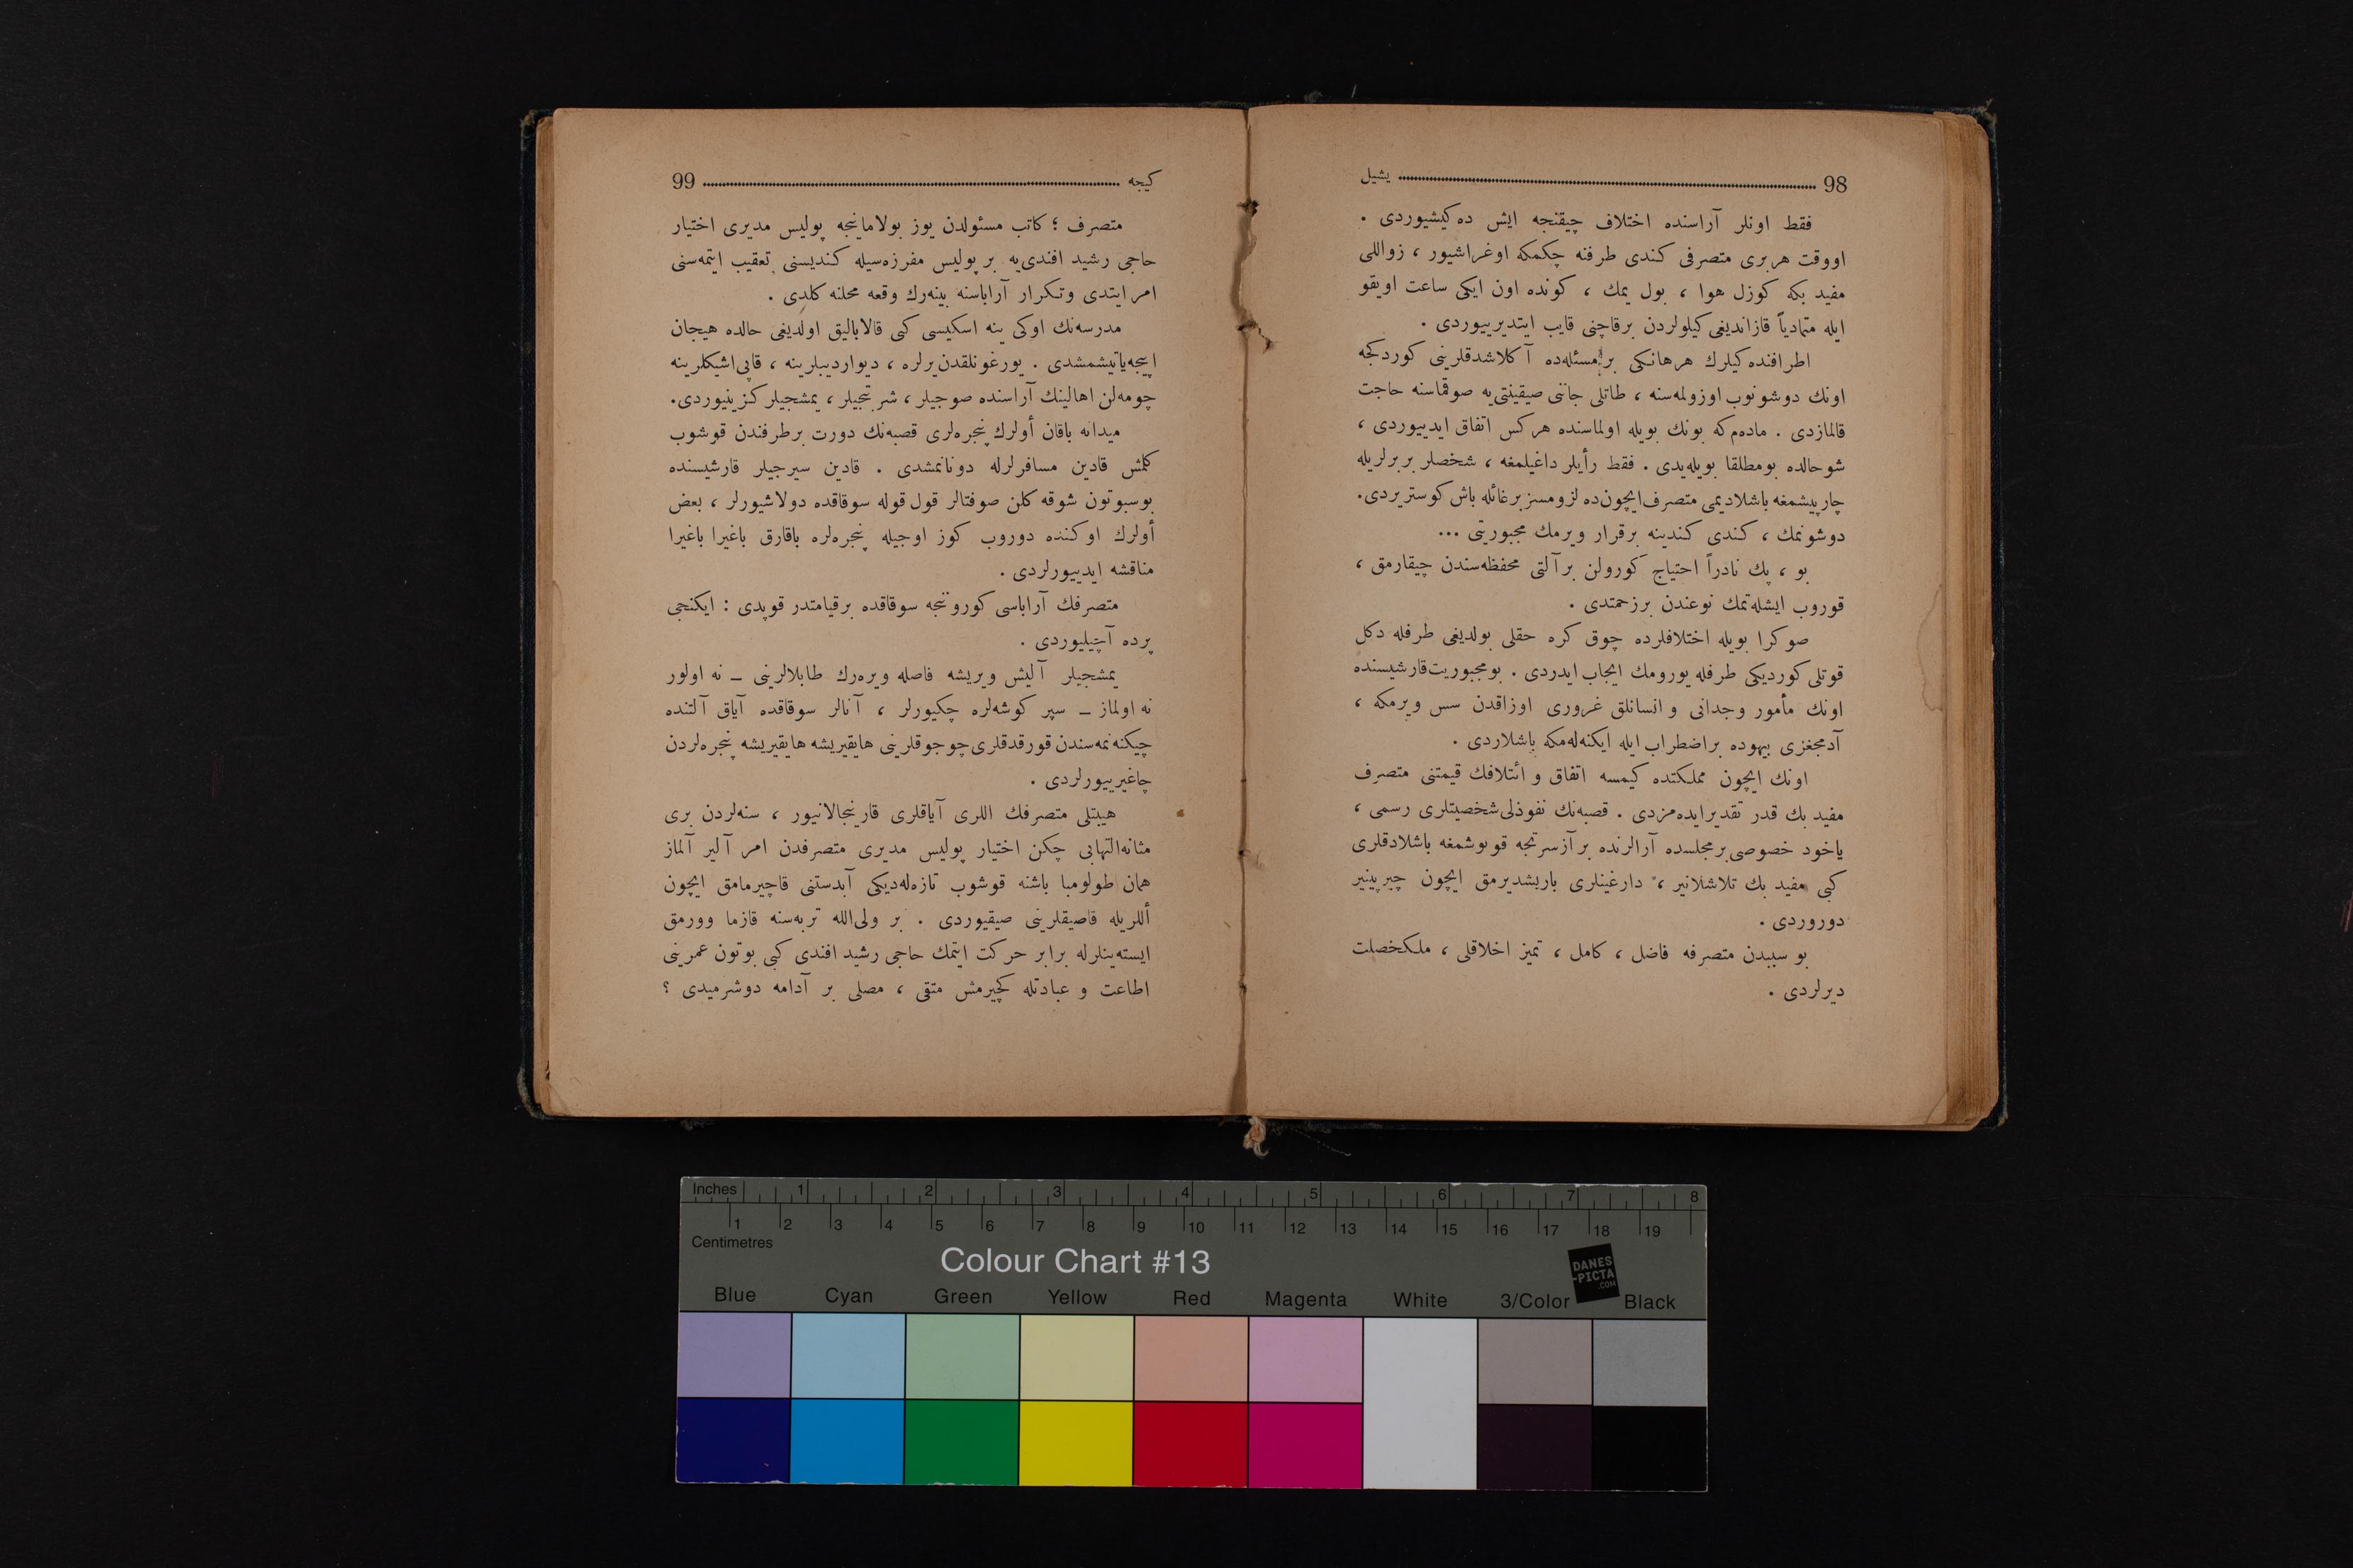 98 يشيل
فقط اونلر آراسنده اختلاف چيقنجه ايش ده‌كيشيوردى .
اووقت هربرى متصرفى كندى طرفنه چكمكه اوغراشيور ، زواللى
مفيد بكه كوزل هوا ، بول يمك ، كونده اون ايكى ساعت اويقو
ايله متمادياً قازانديغى كيلولردن برقاچنى قايب ايتديرييوردى .
اطرافنده‌كيلرك هرهانكى برمسئله‌ده آكلاشدقلرينى كوردكجه
اونك دوشونوب اوزولمه‌سنه ، طاتلى جاننى صيقينتى‌يه صوقماسنه حاجت
قالمازدى . ماده‌م‌كه بونك بويله اولماسنده هركس اتفاق ايدييوردى ،
شوحالده بومطلقا بويله‌يدى . فقط رأيلر داغيلمغه ، شخصلر بربرلريله
چارپيشمغه باشلاديمى متصرف‌ايچون‌ده لزومسز برغائله باش كوستريردى.
دوشونمك ، كندى كندينه برقرار ويرمك مجبوريتى ...
بو ، پك نادراً احتياج كورولن برآلتى محفظه‌سندن چيقارمق ،
قوروب ايشله‌تمك نوعندن برزحمتدى .
صوكرا بويله اختلافلرده چوق كره حقلى بولديغى طرفله دكل
قوتلى كورديكى طرفله يورومك ايجاب ايدردى . بومجبوريت‌قارشيسنده
اونك مأمور وجدانى و انسانلق غرورى اوزاقدن سس ويرمكه ،
آدمجغزى بيهوده براضطراب ايله ايكنه‌له‌مكه باشلاردى .
اونك ايچون مملكتده كيمسه اتفاق و ائتلافك قيمتنى متصرف
مفيد بك قدر تقديرايده‌مزدى . قصبه‌نك نفوذلى‌شخصيتلرى رسمى ،
ياخود خصوصى‌برمجلسده آرالرنده برآزسرتجه قونوشمغه باشلادقلرى
كبى مفيد بك تلاشلانير ، دارغينلرى باريشديرمق ايچون چيرپينير
دوروردى .
بو سببدن متصرفه فاضل ، كامل ، تميز اخلاقلى ، ملكخصلت
ديرلردى .
كيجه 99
متصرف ؛ كاتب مسئولدن يوز بولاماينجه پوليس مديرى اختيار
حاجى رشيد افندى‌يه بر پوليس مفرزه‌سيله كنديسنى تعقيب ايتمه‌سنى
امر ايتدى وتكرار آراباسنه بينه‌رك وقعه محلنه كلدى .
مدرسه‌نك اوكى ينه اسكيسى كبى قالاباليق اولديغى حالده هيجان
اييجه‌ياتيشمشدى . يورغونلقدن‌يرلره ، ديوارديبلرينه ، قاپى‌اشيكلرينه
چومه‌لن اهالينك آراسنده صوجيلر ، شربتجيلر ، يمشجيلر كزينيوردى.
ميدانه باقان أولرك پنجره‌لرى قصبه‌نك دورت برطرفندن قوشوب
كلمش قادين مسافرلرله دونانمشدى . قادين سيرجيلر قارشيسنده
بوسبوتون شوقه كلن صوفتالر قول قوله سوقاقده دولاشيورلر ، بعض
أولرك اوكنده دوروب كوز اوجيله پنجره‌لره باقارق باغيرا باغيرا
مناقشه ايدييورلردى .
متصرفك آراباسى كورونجه سوقاقده برقيامتدر قوپدى : ايكنجى
پرده آچيليوردى .
يمشجيلر آليش ويريشه فاصله ويره‌رك طابلالرينى ـ نه اولور
نه اولماز ـ سپر كوشه‌لره چكيورلر ، آنالر سوقاقده آياق آلتنده
چيكنه‌نمه‌سندن قورقدقلرى چوجوقلرينى هايقيريشه هايقيريشه پنجره‌لردن
چاغيرييورلردى .
هيبتلى متصرفك اللرى آياقلرى قارينجالانيور ، سنه‌لردن برى
مثانه‌التهابى چكن اختيار پوليس مديرى متصرفدن امر آلير آلماز
همان طولومبا باشنه قوشوب تازه‌له‌ديكى آبدستنى قاچيرمامق ايچون
أللريله قاصيقلرينى صيقيوردى . بر ولى‌الله تربه‌سنه قازما وورمق
ايسته‌ينلرله برابر حركت ايتمك حاجى رشيد افندى كبى بوتون عمرينى
اطاعت و عبادتله كچيرمش متقى ، مصلى بر آدامه دوشرميدى ؟
Inches 1 2 3 4 5 6 7 8
1 2 3 4 5 6 7 8 9 10 11 12 13 14 15 16 17 18 19
Centimetres
Colour Chart #13
DANES
-PICTA
.COM
Blue Cyan Green Yellow Red Magenta White 3/Color Black